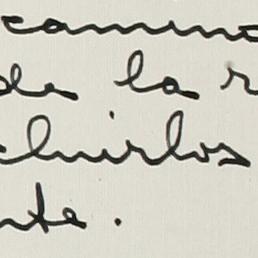 camin
de la r
chirlos
nte.